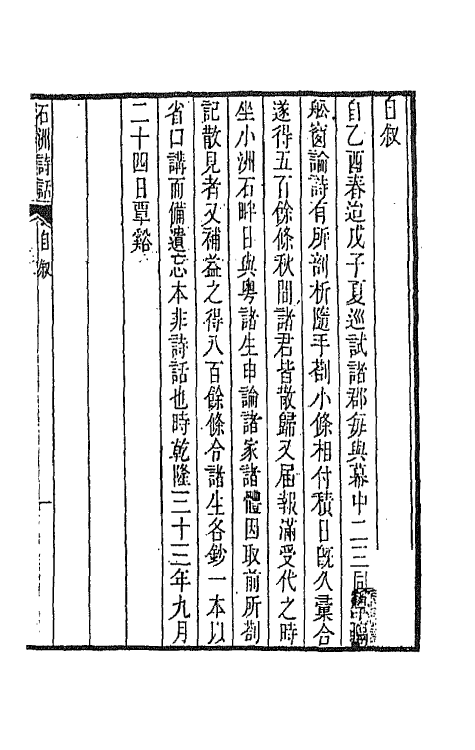 自敘
自乙酉春迨戊子夏巡試諸郡每與幕中二三同
舩窗論詩有所剖析隨手劄小條相付積日旣久彙合
遂得五百餘條秋間諸君皆散歸又屆報滿受代之時
坐小洲石畔日與粵諸生申論諸家諸體因取前所劄
記散見者又補益之得八百餘條令諸生各鈔一本以
省口講而備遺忘本非詩話也時乾隆三十三年九月
二十四日覃谿
石洲詩話 自敘 一